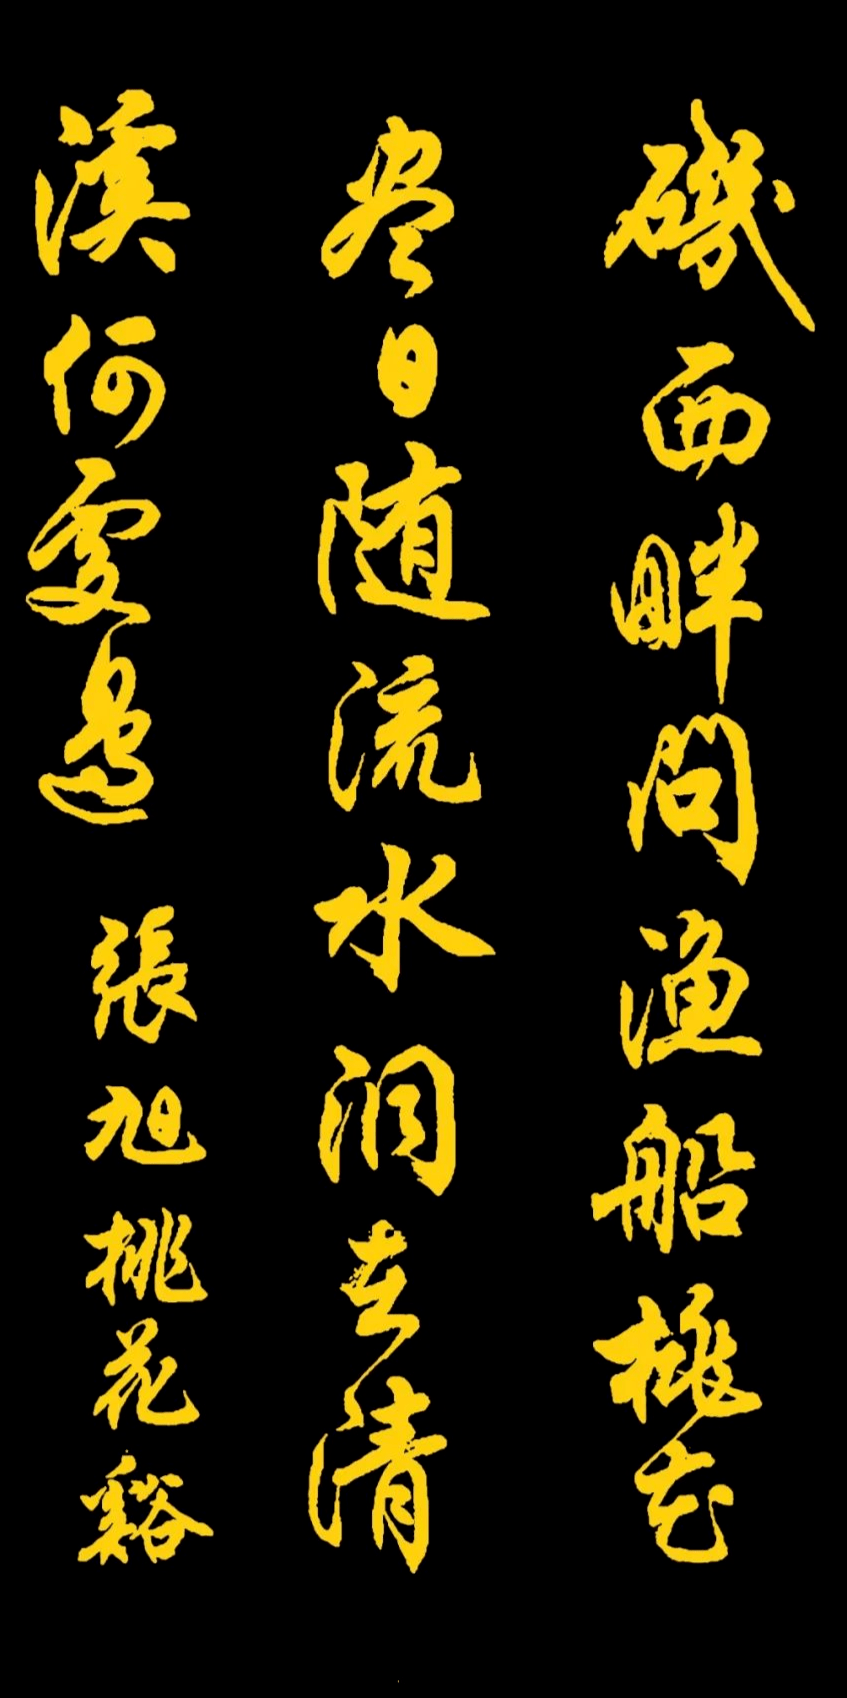 磯西畔問渔船桃花
尽日随流水洞在清
溪何處邊 張旭桃花谿